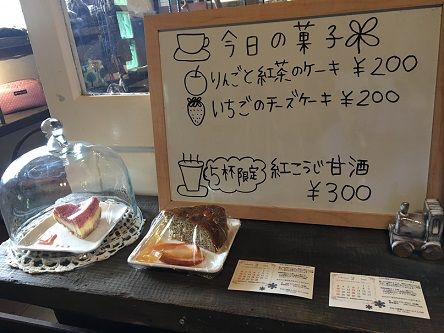 今日の菓子
りんごと紅茶のケーキ ¥200
いちごのチーズケーキ ¥200
5杯限定 紅こうじ甘酒
¥300